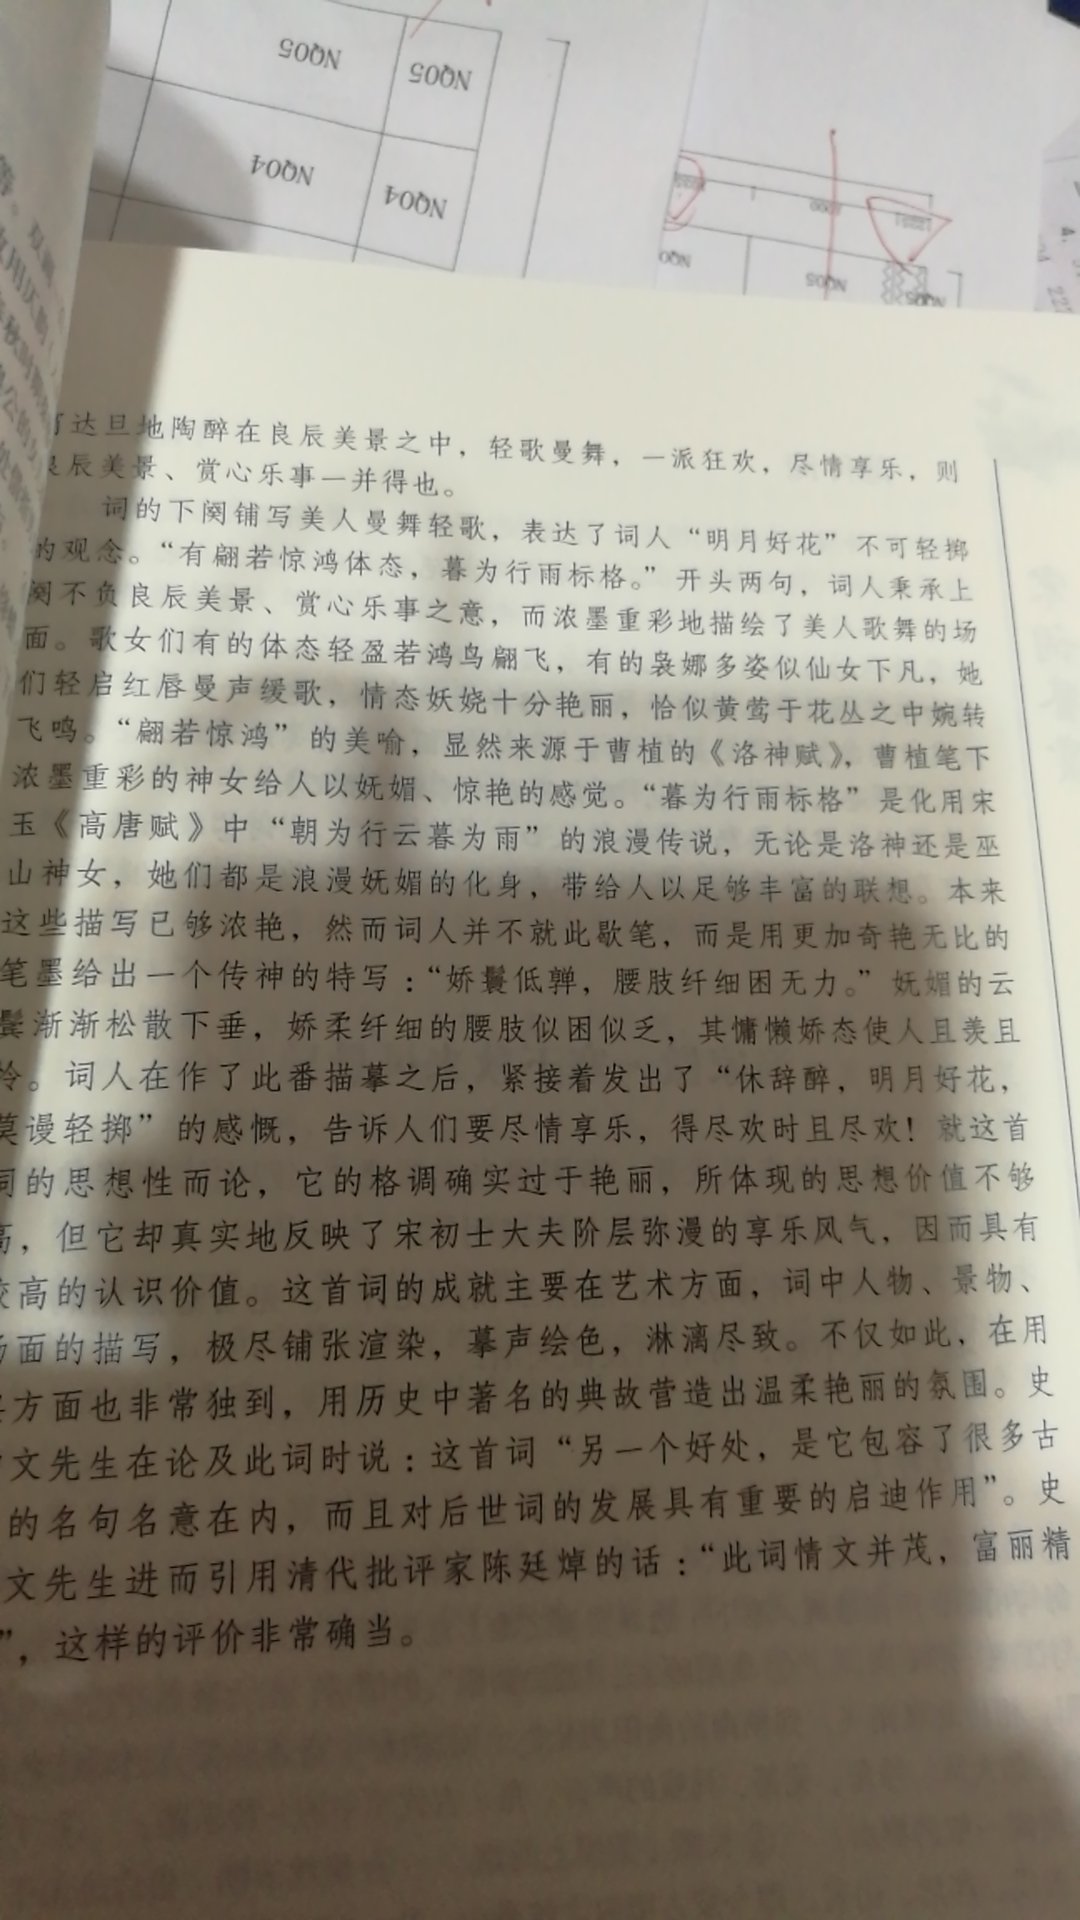 NQ05
NQ05
NQ04
NQ04
NQ05
达旦地陶醉在良辰美景之中，轻歌曼舞，一派狂欢，尽情享乐，则
辰美景、赏心乐事一并得也。
词的下阕铺写美人曼舞轻歌，表达了词人“明月好花”不可轻掷
的观念。“有翩若惊鸿体态，暮为行雨标格。”开头两句，词人秉承上
阕不负良辰美景、赏心乐事之意，而浓墨重彩地描绘了美人歌舞的场
面。歌女们有的体态轻盈若鸿鸟翩飞，有的袅娜多姿似仙女下凡，她
们轻启红唇曼声缓歌，情态妖娆十分艳丽，恰似黄莺于花丛之中婉转
飞鸣。“翩若惊鸿”的美喻，显然来源于曹植的《洛神赋》，曹植笔下
浓墨重彩的神女给人以妩媚、惊艳的感觉。“暮为行雨标格”是化用宋
玉《高唐赋》中“朝为行云暮为雨”的浪漫传说，无论是洛神还是巫
山神女，她们都是浪漫妩媚的化身，带给人以足够丰富的联想。本来
这些描写已够浓艳，然而词人并不就此歇笔，而是用更加奇艳无比的
笔墨给出一个传神的特写：“娇鬟低亸，腰肢纤细困无力。”妩媚的云
鬓渐渐松散下垂，娇柔纤细的腰肢似困似乏，其慵懒娇态使人且羡且
怜。词人在作了此番描摹之后，紧接着发出了“休辞醉，明月好花，
莫谩轻掷”的感慨，告诉人们要尽情享乐，得尽欢时且尽欢！就这首
词的思想性而论，它的格调确实过于艳丽，所体现的思想价值不够
高，但它却真实地反映了宋初士大夫阶层弥漫的享乐风气，因而具有
较高的认识价值。这首词的成就主要在艺术方面，词中人物、景物、
场面的描写，极尽铺张渲染，摹声绘色，淋漓尽致。不仅如此，在用
方面也非常独到，用历史中著名的典故营造出温柔艳丽的氛围。史
文先生在论及此词时说：这首词“另一个好处，是它包容了很多古
的名句名意在内，而且对后世词的发展具有重要的启迪作用”。史
文先生进而引用清代批评家陈廷焯的话：“此词情文并茂，富丽精
”，这样的评价非常确当。